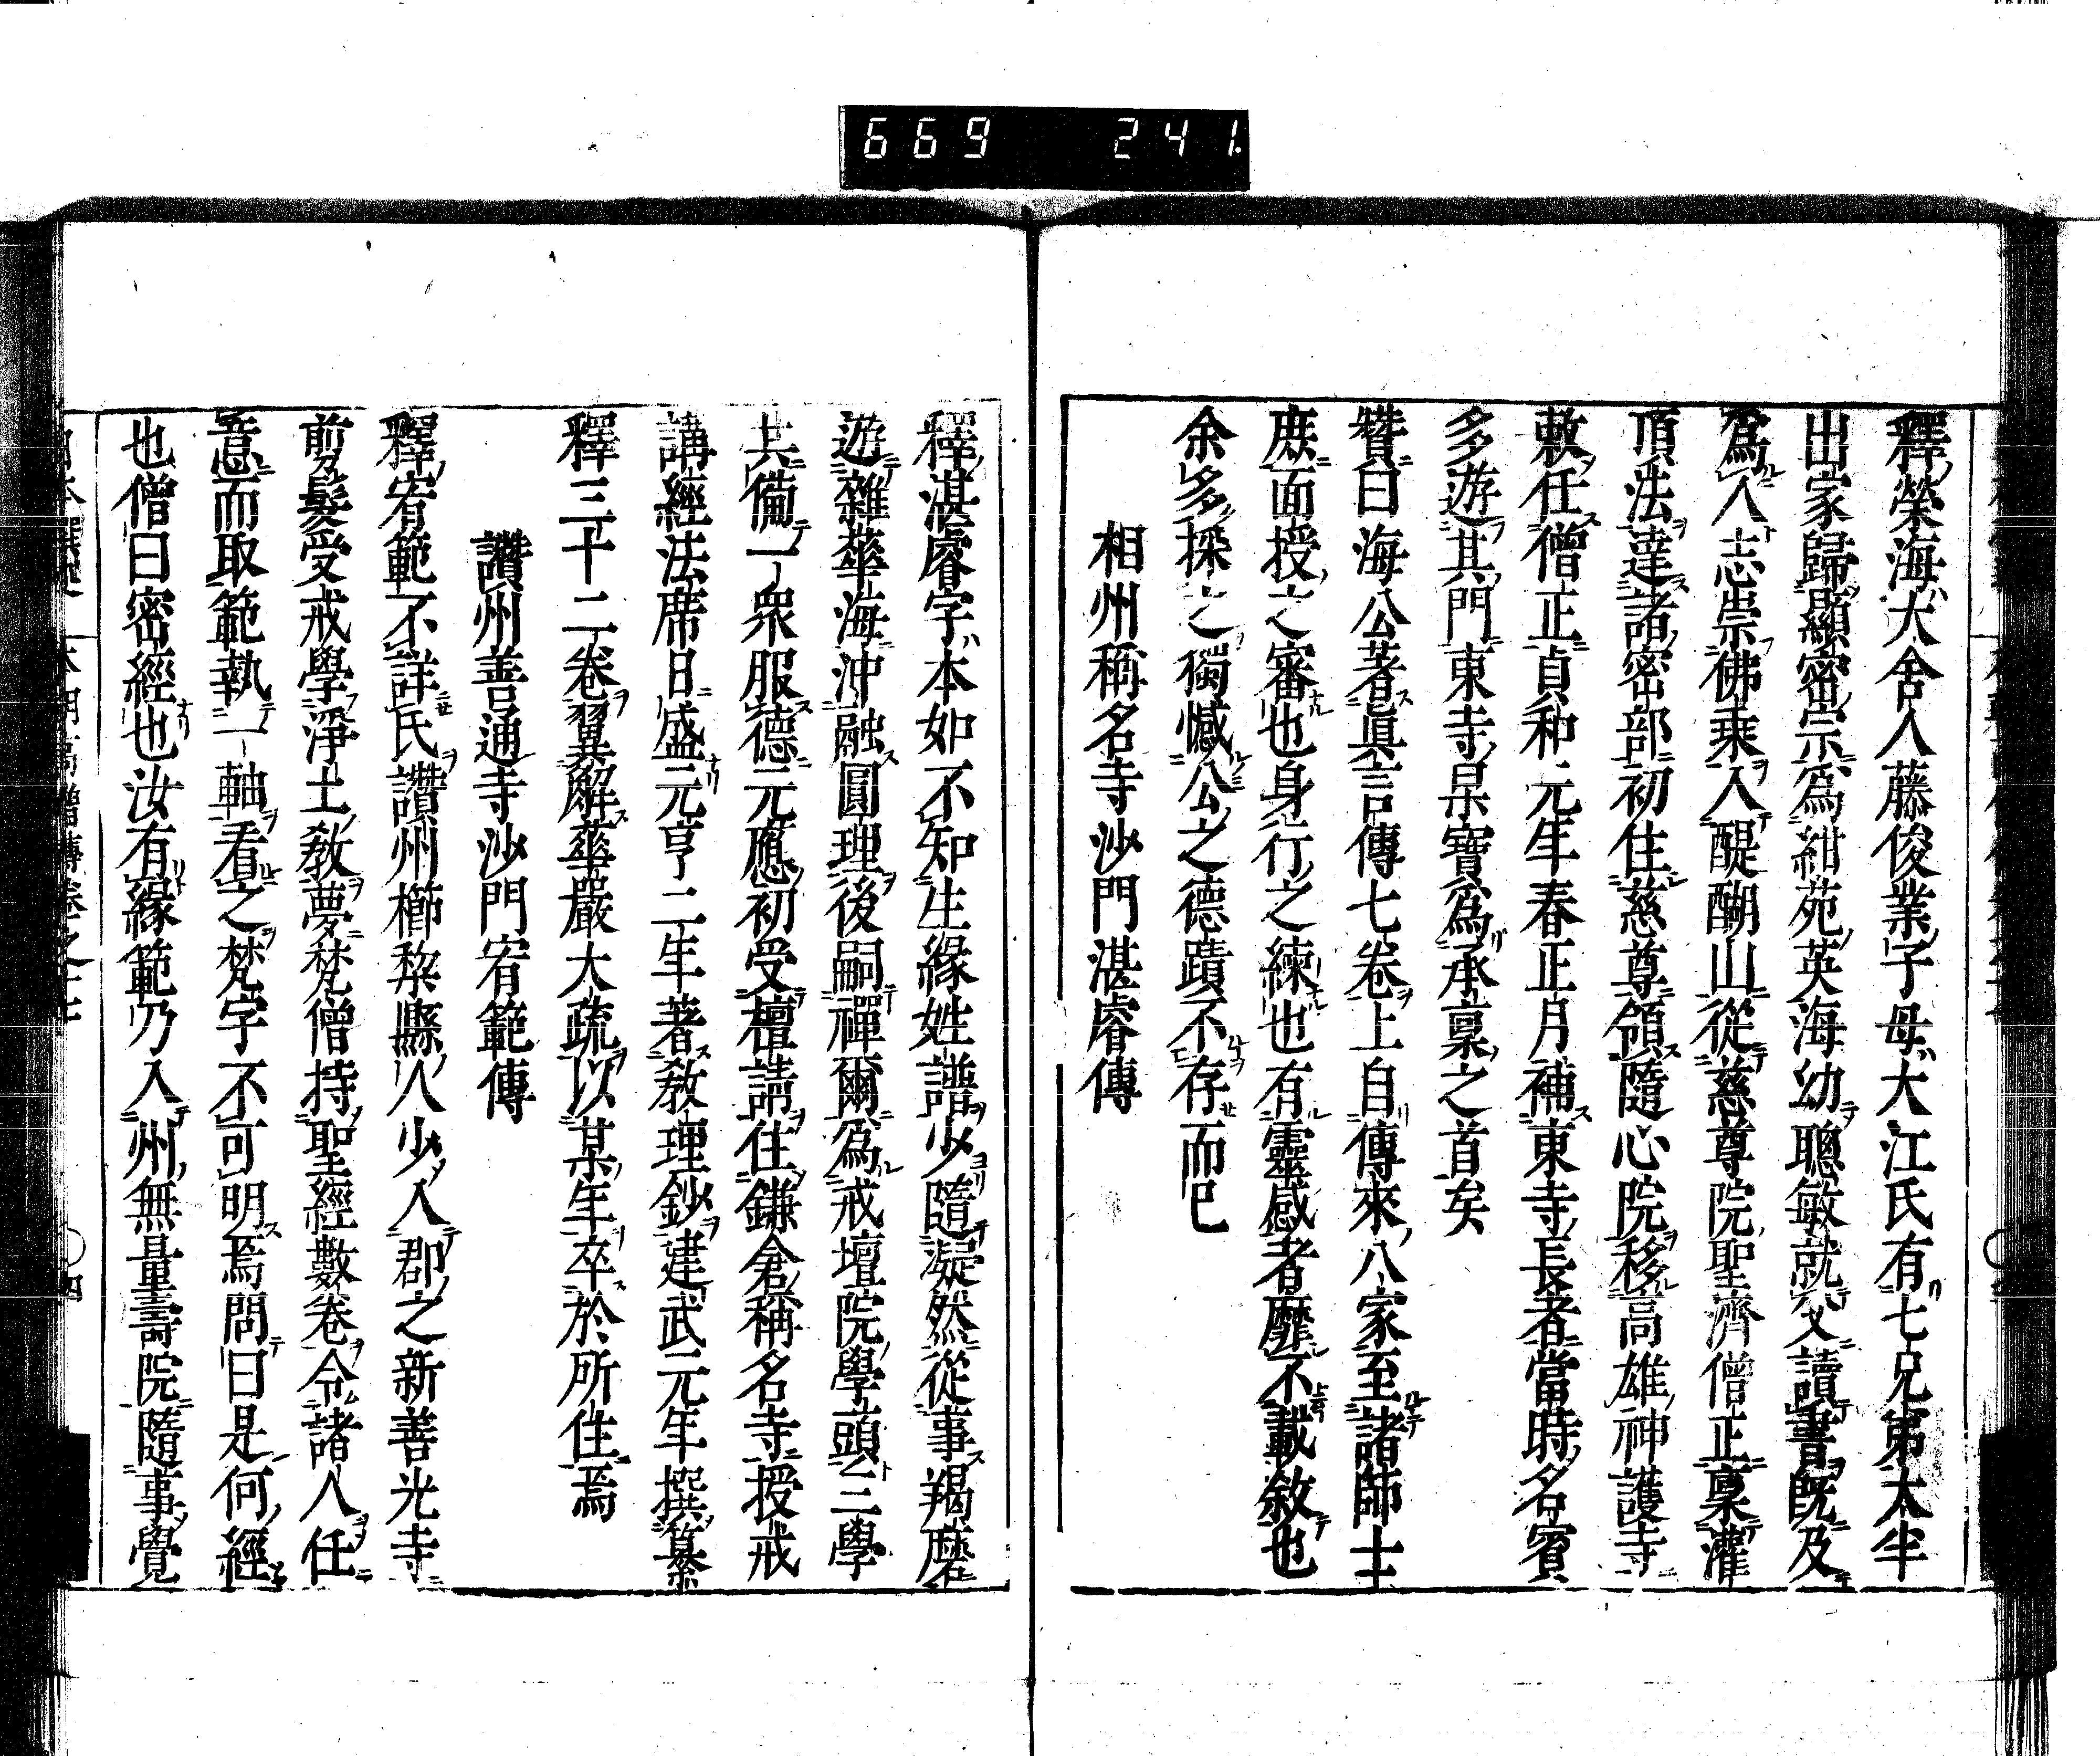 669 241.
釋榮海大舍人藤俊業子母大江氏有七兄第太半
出家歸顯密宗爲紺苑英海幼聰敏就父讀書既及
爲人志崇佛乗入醍醐山從慈尊院聖濟僧正稟灌
頂法達諸密部初住慈尊領隨心院移高雄神護寺
敕任僧正貞和元年春正月補東寺長者當時名賓
多遊其門東寺杲寶爲承稟之首矣
贊曰海公著眞言傳七卷上自傳來八家至諸師士
庶面授之審也身行之練也有靈感者靡不載敘也
余多採之獨憾公之德蹟不存而已
相州稱名寺沙門湛睿傳
釋湛睿字本如不知生緣姓譜少隨凝然從事羯磨
遊雜華海沖融圓理後嗣禪爾爲戒壇院學頭三學
共備一衆服德元應初受檀請住鎌倉稱名寺授戒
講經法席日盛元亨二年著教理鈔建武元年撰纂
釋三十二卷翼解華嚴大疏以某年卒於所住焉
讚州善通寺沙門宥範傳
釋宥範不詳氏讚州櫛梨縣人少入郡之新善光寺
剪髮受戒學淨土教夢梵僧持聖經數卷令諸人任
意而取範執一軸看之梵字不可明焉問曰是何經
也僧曰密經也汝有緣範乃入州無量壽院隨事覺